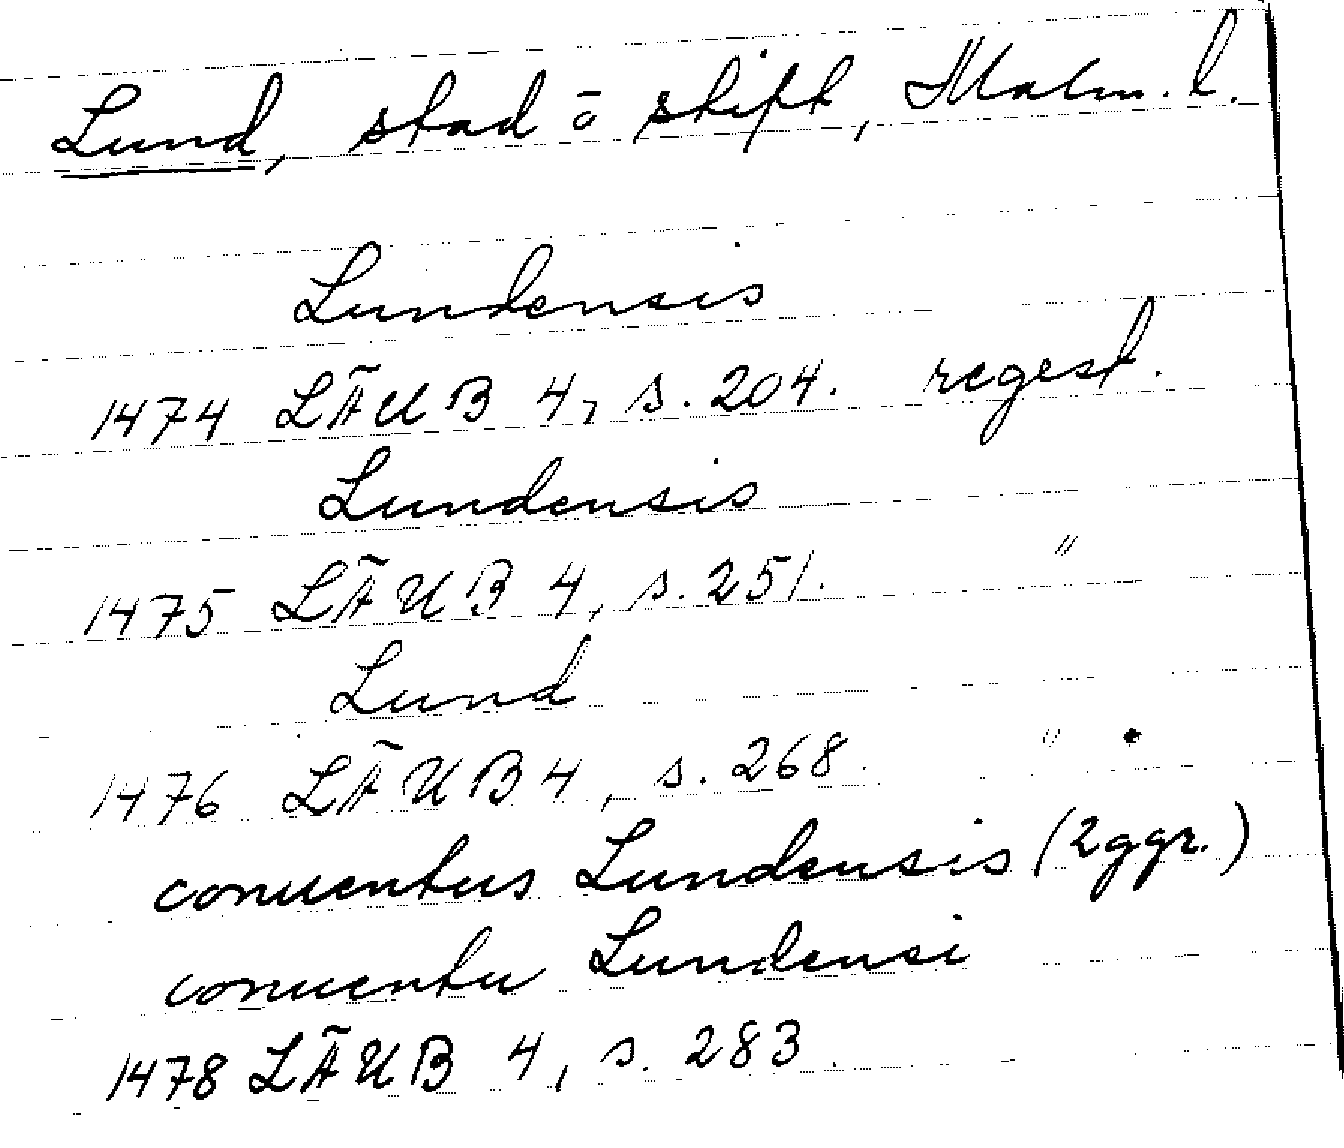 Lund, stad ō skift, Malm. l.
Lundensis
1474 LÄUB 4, s. 204. regest.
Lundensis
1475 LÄUB 4, s. 251. "
Lund
1476 LÄUB 4, s. 268. "
conuentus Lundensis (2ggr.)
conuentu Lundensi
1478 LÄUB 4, s. 283.